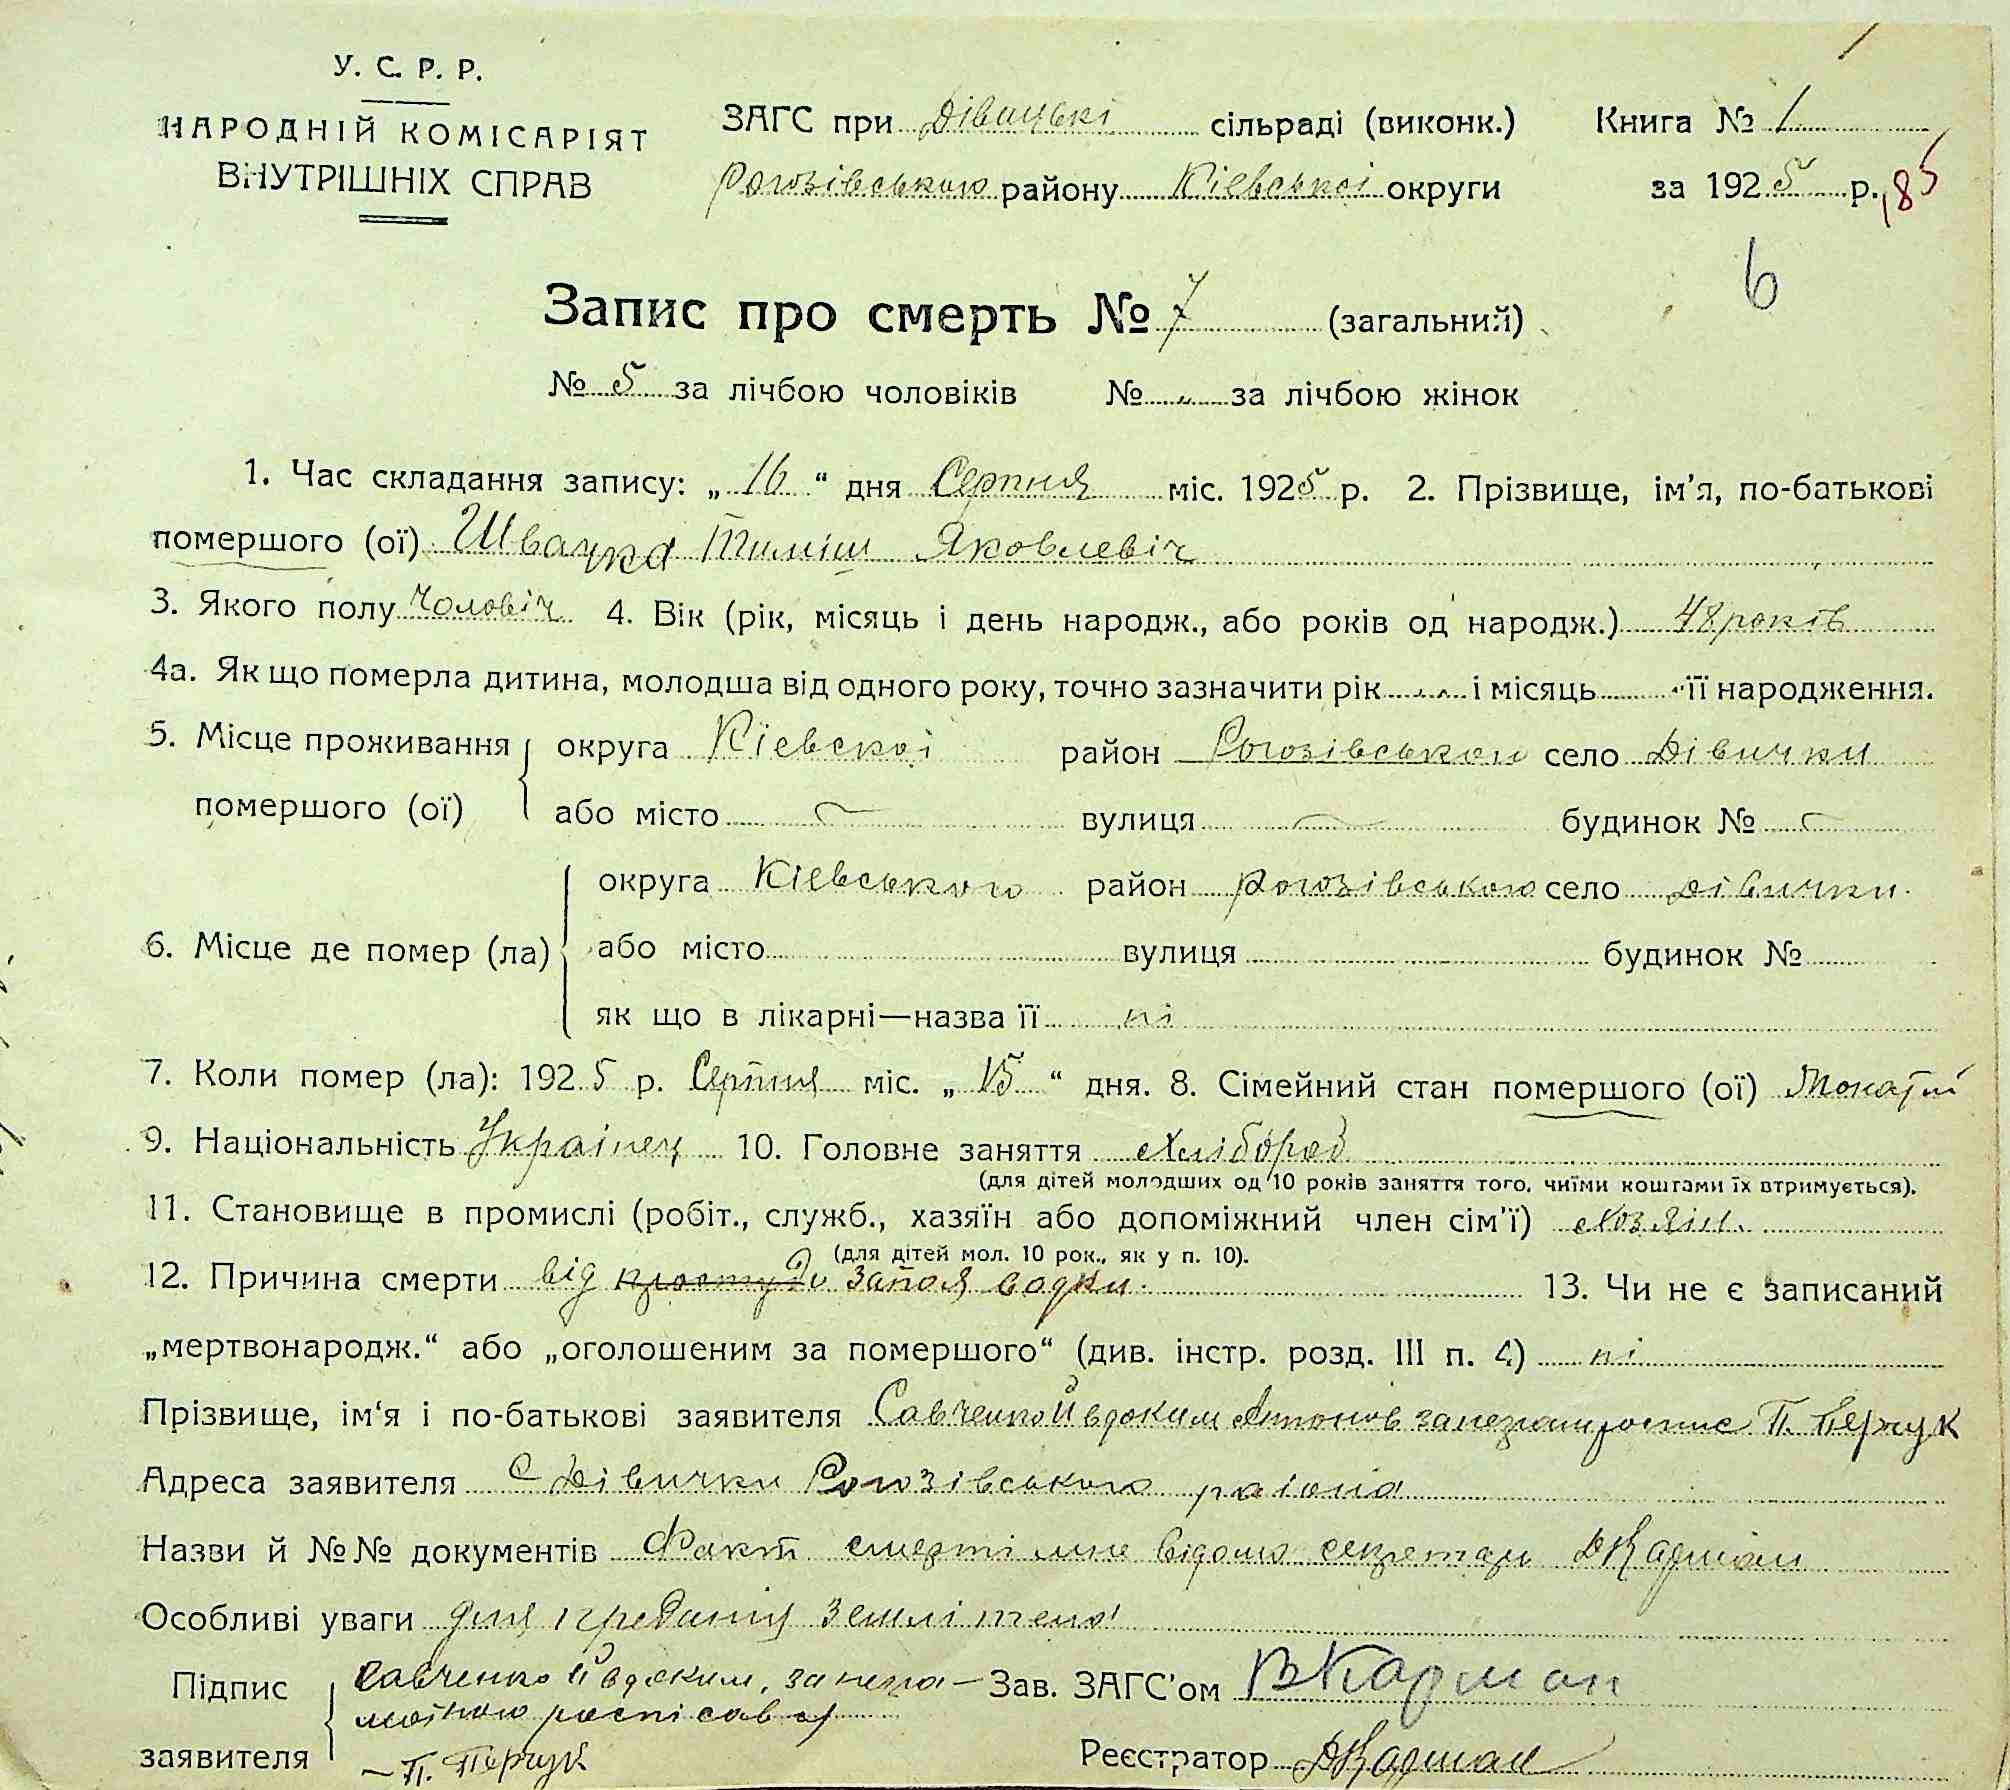 У. С. Р. Р.
НАРОДНІЙ КОМІСАРІЯТ
ВНУТРІШНІХ СПРАВ
ЗАГС при Дівицькі сільраді (виконк.)
Рогозівського району Кіевської округи
Книга № 1
за 1925 р.
185
6
Запис про смерть № 7 (загальний)
№ 5 за лічбою чоловіків № „ за лічбою жінок
1. Час складання запису: „16“ дня Серпня міс. 1925 р. 2. Прізвище, ім'я, по-батькові
помершого (ої) Швачка Тиміш Яковлевіч
3. Якого полу Чоловіч 4. Вік (рік, місяць і день народж., або років од народж.) 48 років
4а. Як що померла дитина, молодша від одного року, точно зазначити рік і місяць її народження.
5. Місце проживання округа Кіевскої район Рогозівського село Дівички
помершого (ої) або місто вулиця будинок №
округа Кіевського район Рогозівського село Дівички.
6. Місце де помер (ла) або місто вулиця будинок №
як що в лікарні—назва її ні
7. Коли помер (ла): 1925 р. Серпня міс. „15“ дня. 8. Сімейний стан помершого (ої)
9. Національність Українец 10. Головне заняття Хлібороб
(для дітей молодших од 10 років заняття того, чиїми коштами їх втримується).
11. Становище в промислі (робіт., служб., хазяїн або допоміжний член сім'ї) Хозяін.
(для дітей мол. 10 рок., як у п. 10).
12. Причина смерти від простуди запоя водки. 13. Чи не є записаний
„мертвонародж.“ або „оголошеним за помершого“ (див. інстр. розд. III п. 4) ні
Прізвище, ім‘я і по-батькові заявителя Савченко Йвдоким Антонов П. Перчук
Адреса заявителя с Дівички Рогозівського раіона
Назви й №№ документів Факт смерті мне відомо секретарь ДКарман
Особливі уваги для предания землі тела
Підпис Савченко Йвдоким, за негра- Зав. ЗАГС'ом ВКарман
мотного росписався
заявителя – П. Перчук Реєстратор ДКарман